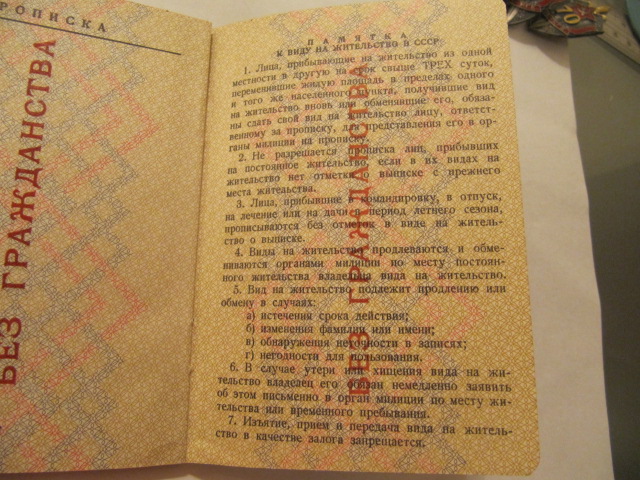 РОПИСКА
БЕЗ ГРАЖДАНСТВА
ПАМЯТКА
К ВИДУ НА ЖИТЕЛЬСТВО В СССР
1. Лица, прибывающие на жительство из одной
местности в другую на срок свыше ТРЕХ суток,
переменившие жилую площадь в пределах одного
и того же населенного пункта, получившие вид
на жительство вновь или обменявшие его, обяза-
ны сдать свой вид на жительство лицу, ответст-
венному за прописку, для представления его в ор-
ганы милиции на прописку.
2. Не разрешается прописка лиц, прибывших
на постоянное жительство, если в их видах на
жительство нет отметки о выписке с прежнего
места жительства.
3. Лица, прибывшие в командировку, в отпуск,
на лечение или на дачи в период летнего сезона,
прописываются без отметок в виде на житель-
ство о выписке.
4. Виды на жительство продлеваются и обме-
ниваются органами милиции по месту постоян-
ного жительства владельца вида на жительство.
5. Вид на жительство подлежит продлению или
обмену в случаях:
а) истечения срока действия;
б) изменения фамилии или имени;
в) обнаружения неточности в записях;
г) негодности для пользования.
6. В случае утери или хищения вида на жи-
тельство владелец его обязан немедленно заявить
об этом письменно в орган милиции по месту жи-
тельства или временного пребывания.
7. Изъятие, прием и передача вида на житель-
ство в качестве залога запрещается.
БЕЗ ГРАЖДАНСТВА
70